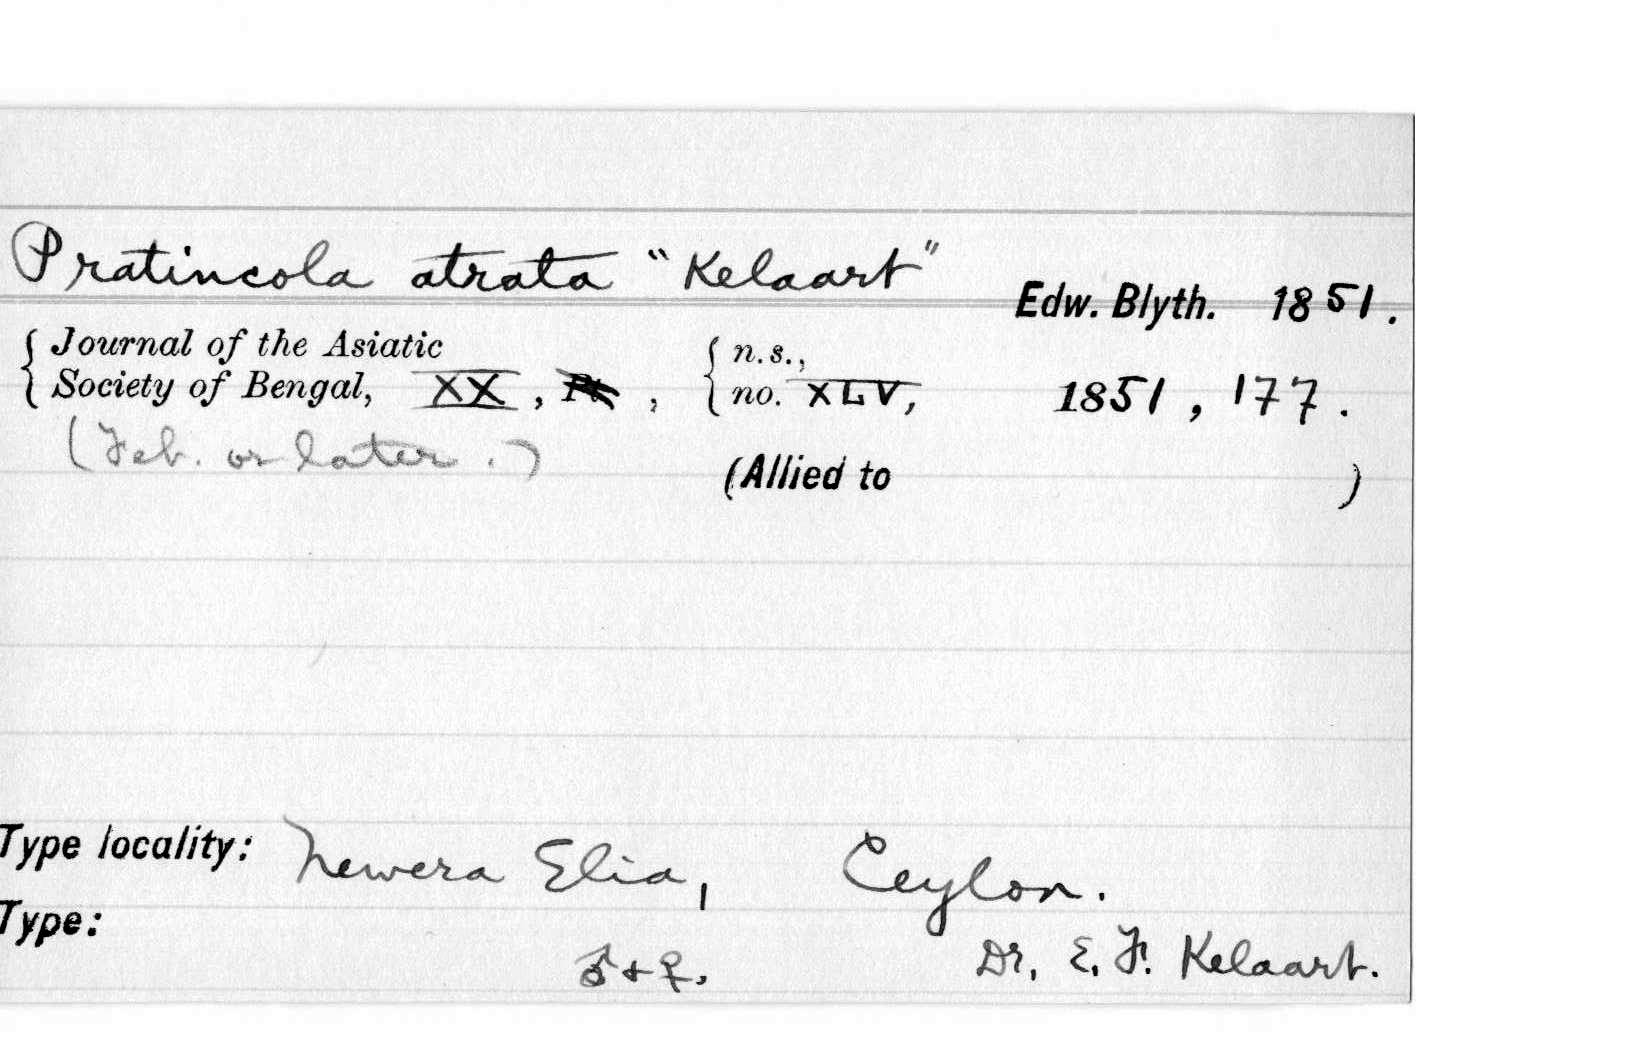 Pratincola atrata "Kelaart"
Edw. Blyth. 1851.
{ Journal of the Asiatic
Society of Bengal, XX, , { n.s.,
no. XLV, 1851, 177.
(Feb. or later.)
(Allied to )
Type locality: Newera Elia, Ceylon.
Type:
♂ + ♀. Dr. E. F. Kelaart.